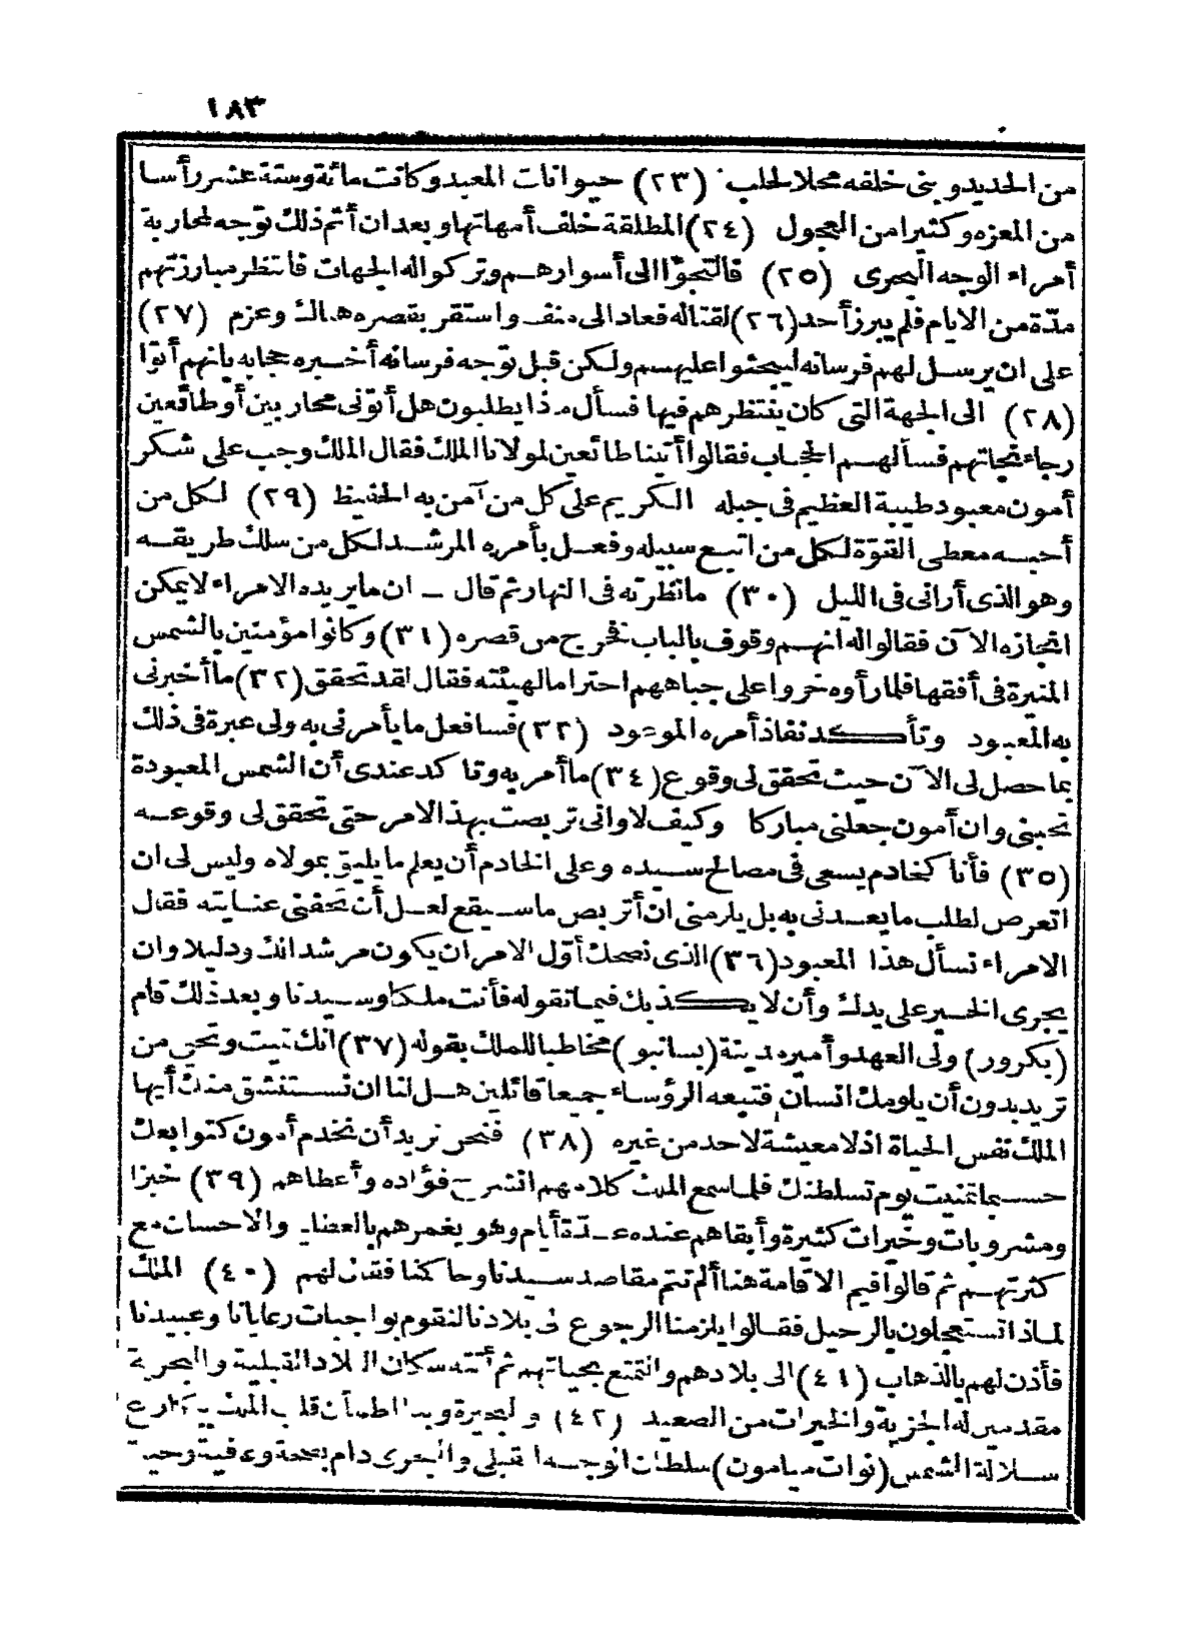 ١٨٣
من الحديد وبنى خلفه محلا لحلب (٢٣) حيوانات المعبد وكانت مائة وستة عشر رأسا
من المعزه وكثيرا من العجول (٢٤) المطلقة خلف أمهاتها وبعد ان أتم ذلك توجه لمحاربة
أمراء الوجه البحرى (٢٥) فالتجؤا الى أسوارهم وتركوا له الجهات فانتظر مبارزتهم
مدّة من الايام فلم يبرز أحد (٢٦) لقتاله فعاد الى منف واستقر بقصره هناك وعزم (٢٧)
على ان يرسل لهم فرسانه ليبحثوا عليهم ولكن قبل توجه فرسانه أخبره حجابه بانهم أتوا
(٢٨) الى الجهة التى كان ينتظرهم فيها فسأل مذا يطلبون هل أتونى محاربين أو طائعين
رجاء نجاتهم فسألهم الحجاب فقالوا أتينا طائعين لمولانا الملك فقال الملك وجب على شكر
أمون معبود طيبة العظيم فى جبله الكريم على كل من آمن به الحفيظ (٢٩) لكل من
أحبه معطى القوّة لكل من اتبع سبيله وفعل بأمره المرشد لكل من سلك طريقه
وهو الذى أرانى فى الليل (٣٠) ما نظرته فى النهار ثم قال ــ ان ما يريده الامراء لا يمكن
انجازه الا آن فقالوا له انهم وقوف بالباب فخرج من قصره (٣١) وكانوا مؤمنين بالشمس
المنيرة فى أفقها فلما رأوه خروا على جباههم احتراما لهيئته فقال لقد تحقق (٣٢) ما أخبرنى
به المعبود وتأكد نفاذ أمره الموعود (٣٣) فسافعل ما يأمرنى به ولى عبرة فى ذلك
بما حصل لى الآن حيث تحقق لى وقوع (٣٤) ما أمر به وتا كد عندى أن الشمس المعبودة
تحبنى وان أمون جعلنى مباركا وكيف لا وانى تربصت بهذا الامر حتى تحقق لى وقوعه
(٣٥) فأنا كخادم يسعى فى مصالح سيده وعلى الخادم أن يعلم ما يليق بمولاه وليس لى ان
اتعرض لطلب ما يعدنى به بل يلزمنى ان أتربص ما سيقع لعل أن تحفنى عنايته فقال
الامراء نسأل هذا المعبود (٣٦) الذى نصحك أوّل الامر ان يكون مرشدا لك ودليلا وان
يجرى الخير على يدك وأن لا يكذبك فيما تقوله فأنت ملكنا وسيدنا وبعد ذلك قام
(بكرور) ولى العهد وأمير مدينة (بسانبو) مخاطبا للملك بقوله (٣٧) انك تميت وتحيى من
تريد بدون أن يلومك انسان فتبعه الرؤساء جميعا قائلين هل لنا ان نستنشق منك أيها
الملك نفس الحياة اذ لا معيشة لاحد من غيره (٣٨) فنحن نريد أن نخدم أمون كتوابعك
حسبما تمنيت يوم تسلطنك فلما سمع الملك كلامهم انشرح فؤاده وأعطاهم (٣٩) خبزا
ومشروبات وخيرات كثيرة وأبقاهم عنده عدّة أيام وهو يغمرهم بالعطايا والاحسان مع
كثرتهم ثم قالوا فيم الاقامة هنا ألم تتم مقاصد سيدنا وحاكمنا فقال لهم (٤٠) الملك
لماذا تستعجلون بالرحيل فقالوا يلزمنا الرجوع الى بلادنا لنقوم بواجبات رعايانا وعبيدنا
فأذن لهم بالذهاب (٤١) الى بلادهم والتمتع بحياتهم ثم أتته سكان البلاد القبلية والبحرية
مقدمين له الجزية والخيرات من الصعيد (٤٢) والبحيرة وبذا اطمأن قلب الملك
سلالة الشمس (نوات ميامون) سلطان الوجه القبلى والبحرى دام بصحة وعافية وحياة